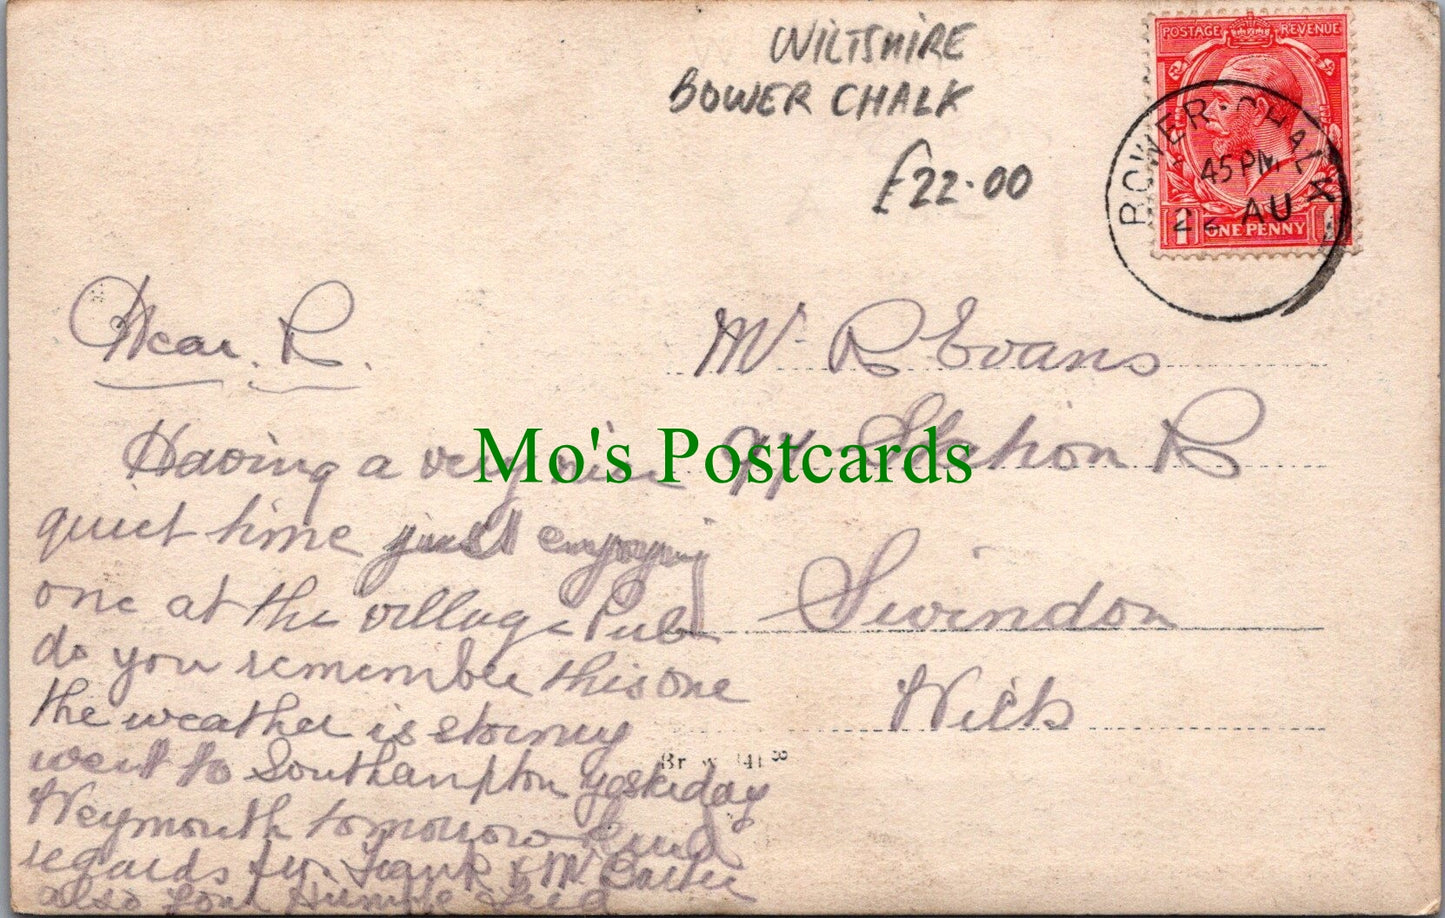 WILTSHIRE
BOWER CHALK
£22.00
POSTAGE REVENUE
BOWER-CHALK
45 PM
22 AU
1 ONE PENNY 1
Dear. R.
Having a very nice
quiet time just enjoying
one at the village Pub
do you remember this one
the weather is stormy
went to Southampton yesterday
Weymouth tomorrow kind
regards Frank & Mr
also your Humble
Mr R Evans
97 Station R
Swindon
Wilts
Mo's Postcards